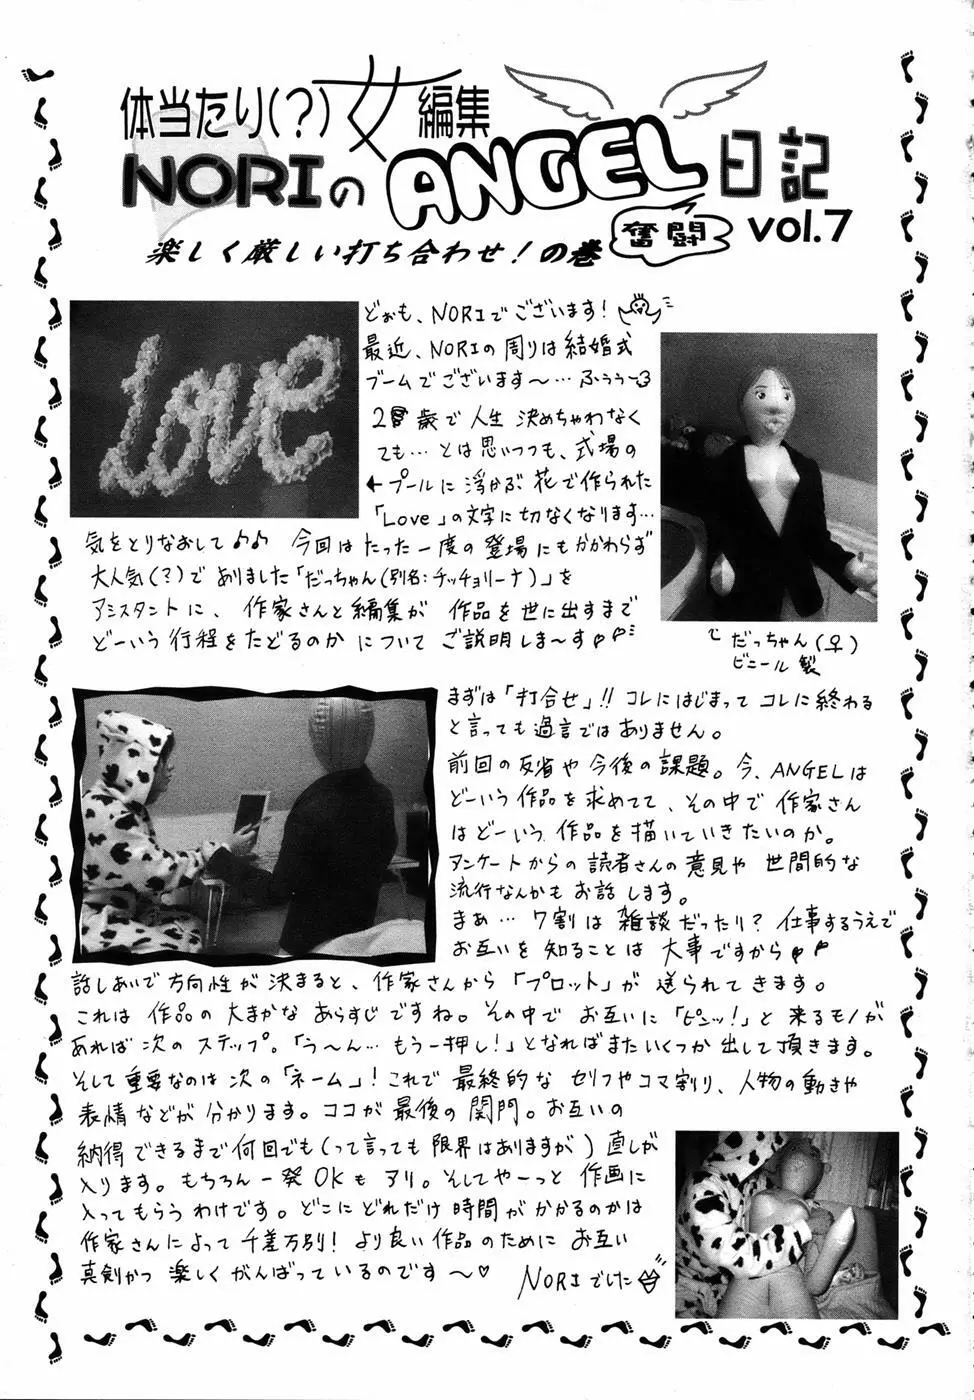 体当たり(?)女編集
NORIのANGEL日記
奮闘
vol.7
楽しく厳しい打ち合わせ!の巻
どぉも、NORIでございます!
最近、NORIの周りは結婚式
ブームでございます〜…ふぅぅ〜3
歳で人生決めちゃわなく
ても…とは思いつつも、式場の
←プールに浮かぶ花で作られた
「Love」の文字に切なくなります…
love
気をとりなおして♪♪ 今回はたった一度の登場にもかかわらず
大人気(?)でありました「だっちゃん(別名:チッチョリーナ)」を
アシスタントに、作家さんと編集が 作品を世に出すまで
どーいう行程をたどるのかについて ご説明しま〜す♪♪
だっちゃん(♀)
ビニール製
まずは「打合せ」!! コレにはじまってコレに終わる
と言っても過言ではありません。
前回の反省や今後の課題。今、ANGELは
どーいう作品を求めてて、その中で作家さん
はどーいう作品を描いていきたいのか。
アンケートからの読者さんの意見や世間的な
流行なんかもお話します。
まぁ…7割は雑談だったり?仕事するうえで
お互いを知ることは大事ですから♪♪
話しあいで方向性が決まると、作家さんから「プロット」が送られてきます。
これは作品の大まかなあらすじですね。その中でお互いに「ピンッ!」と来るモノが
あれば次のステップ。「う〜ん…もう一押し!」となればまたいくつか出して頂きます。
そして重要なのは次の「ネーム」!これで最終的なセリフやコマ割り、人物の動きや
表情などが分かります。ココが最後の関門。お互いの
納得できるまで何回でも(って言っても限界はありますが)直しが
入ります。もちろん一発OKもアリ。そしてや〜っと作画に
入ってもらうわけです。どこにどれだけ時間がかかるのかは
作家さんによって千差万別!より良い作品のためにお互い
真剣かつ楽しくがんばっているのです〜♡
NORIでした